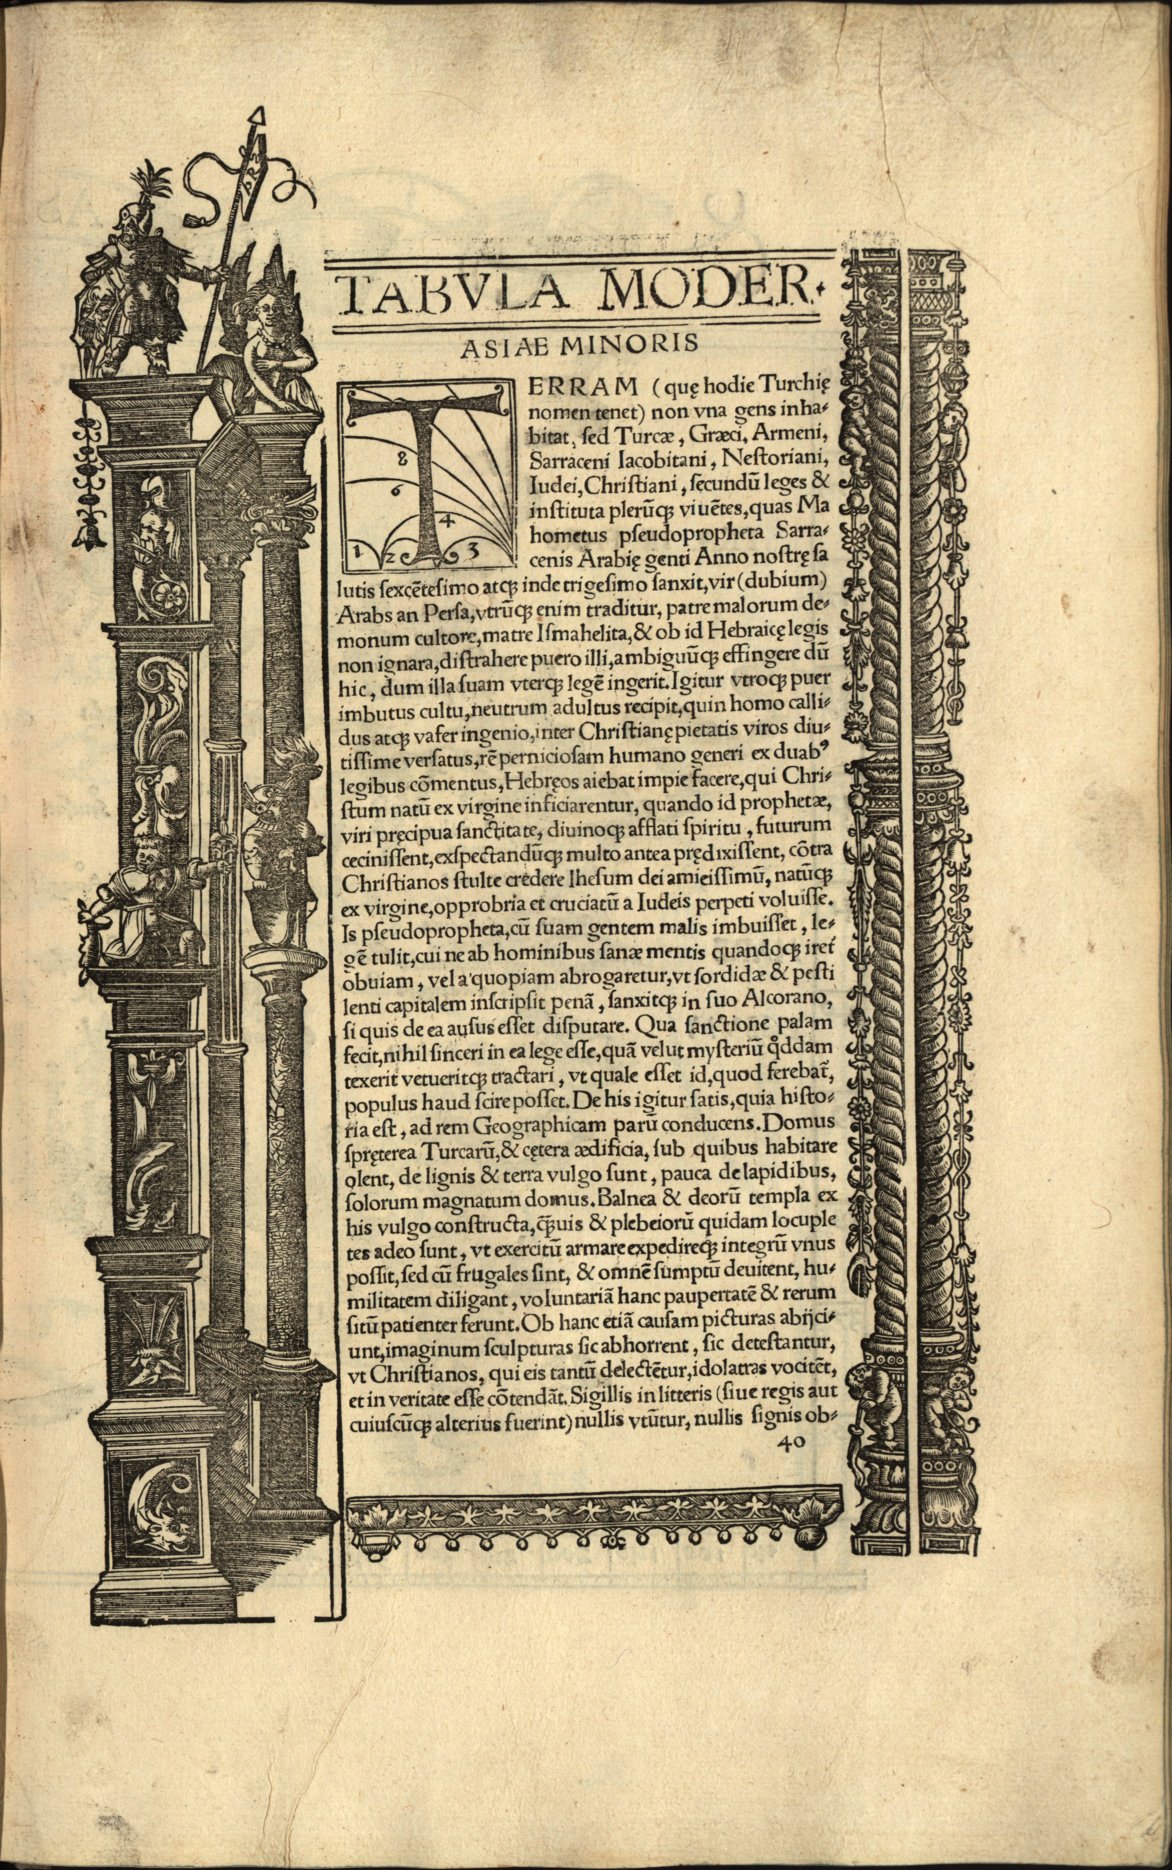 TABVLA MODER.
ASIAE MINORIS
TERRAM (quę hodie Turchię
nomen tenet) non vna gens inha-
bitat, sed Turcæ, Græci, Armeni,
Sarraceni Iacobitani, Nestoriani,
Iudei, Christiani, secundū leges &
instituta plerūqȝ viuētes, quas Ma
hometus pseudopropheta Sarra-
cenis Arabię genti Anno nostrę sa
8
6
4
1 2 3
lutis sexcētesimo atqȝ inde trigesimo sanxit, vir (dubium)
Arabs an Persa, vtrūqȝ enim traditur, patre malorum de-
monum cultore, matre Ismahelita, & ob id Hebraicę legis
non ignara, distrahere puero illi, ambiguūqȝ effingere dū
hic, dum illa suam vterqȝ legē ingerit. Igitur vtroqȝ puer
imbutus cultu, neutrum adultus recipit, quin homo calli-
dus atqȝ vafer ingenio, inter Christianę pietatis viros diu-
tissime versatus, rē perniciosam humano generi ex duabꝰ
legibus cōmentus, Hebręos aiebat impie facere, qui Chri-
stum natū ex virgine inficiarentur, quando id prophetæ,
viri pręcipua sanctitate, diuinoqȝ afflati spiritu, futurum
cecinissent, exspectandūqȝ multo antea prędixissent, cōtra
Christianos stulte credere Ihesum dei amicissimū, natūqȝ
ex virgine, opprobria et cruciatū a Iudeis perpeti voluisse.
Is pseudopropheta, cū suam gentem malis imbuisset, le-
gē tulit, cui ne ab hominibus sanæ mentis quandoqȝ iret
obuiam, vel a quopiam abrogaretur, vt sordidæ & pesti
lenti capitalem inscripsit penā, sanxitqȝ in suo Alcorano,
si quis de ea ausus esset disputare. Qua sanctione palam
fecit, nihil sinceri in ea lege esse, quā velut mysteriū qͦddam
texerit vetueritqȝ tractari, vt quale esset id, quod ferebat̄,
populus haud scire posset. De his igitur satis, quia histo-
ria est, ad rem Geographicam parū conducens. Domus
spręterea Turcarū, & cętera ædificia, sub quibus habitare
olent, de lignis & terra vulgo sunt, pauca de lapidibus,
solorum magnatum domus. Balnea & deorū templa ex
his vulgo constructa, q̄ȝuis & plebeiorū quidam locuple
tes adeo sunt, vt exercitū armare expedireqȝ integrū vnus
possit, sed cū frugales sint, & omnē sumptū deuitent, hu-
militatem diligant, voluntariā hanc paupertatē & rerum
sitū patienter ferunt. Ob hanc etiā causam picturas abijci-
unt, imaginum sculpturas sic abhorrent, sic detestantur,
vt Christianos, qui eis tantū delectētur, idolatras vocitēt,
et in veritate esse cōtendāt. Sigillis in litteris (siue regis aut
cuiuscūqȝ alterius fuerint) nullis vtūtur, nullis signis ob-
40